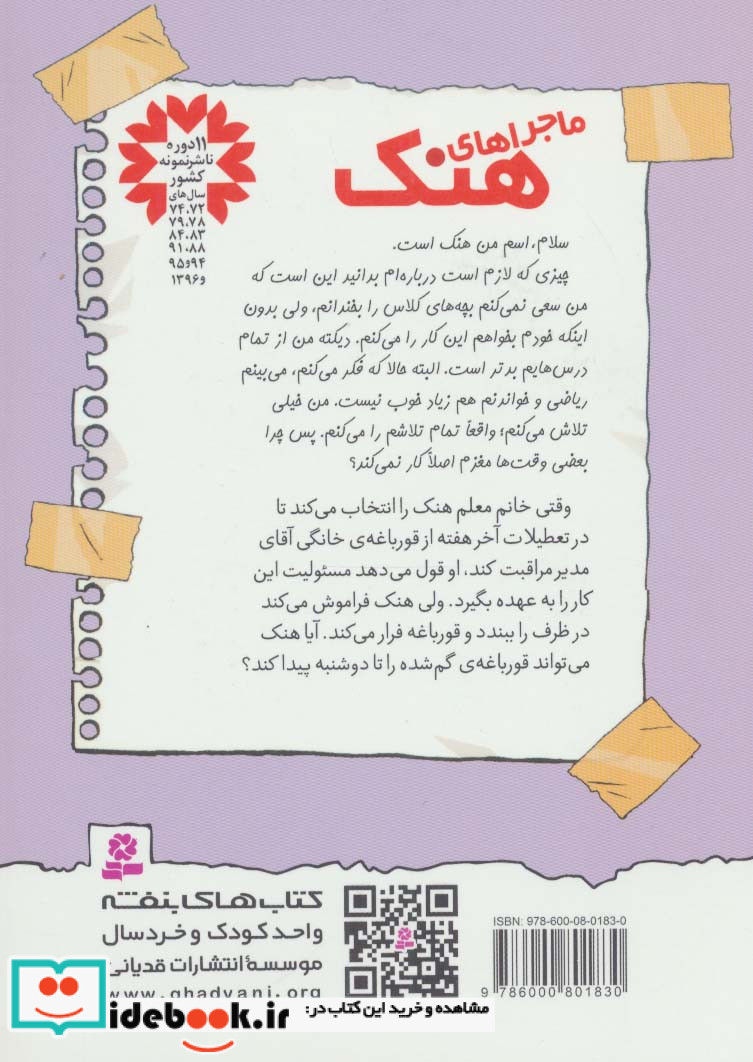 ماجراهای
هنک
۱۱ دوره
ناشر نمونه
کشور
سال‌های
۷۴،۷۲
۷۹،۷۸
۸۴،۸۳
۹۱،۸۸
۹۴و۹۵
و۱۳۹۶
سلام، اسم من هنک است.
چیزی که لازم است درباره‌ام بدانید این است که
من سعی نمی‌کنم بچه‌های کلاس را بخندانم، ولی بدون
اینکه خودم بخواهم این کار را می‌کنم. دیکته من از تمام
درس‌هایم بدتر است. البته حالا که فکر می‌کنم، می‌بینم
ریاضی و خواندنم هم زیاد خوب نیست. من خیلی
تلاش می‌کنم؛ واقعاً تمام تلاشم را می‌کنم. پس چرا
بعضی وقت‌ها مغزم اصلاً کار نمی‌کند؟
وقتی خانم معلم هنک را انتخاب می‌کند تا
در تعطیلات آخر هفته از قورباغه‌ی خانگی آقای
مدیر مراقبت کند، او قول می‌دهد مسئولیت این
کار را به عهده بگیرد. ولی هنک فراموش می‌کند
در ظرف را ببندد و قورباغه فرار می‌کند. آیا هنک
می‌تواند قورباغه‌ی گم‌شده را تا دوشنبه پیدا کند؟
کتاب‌های بنفشه
واحد کودک و خردسال
موسسهٔ انتشارات قدیانی
www.ghadyani.org
ISBN: 978-600-08-0183-0
9 786000 801830
مشاهده و خرید این کتاب در:
idebook.ir